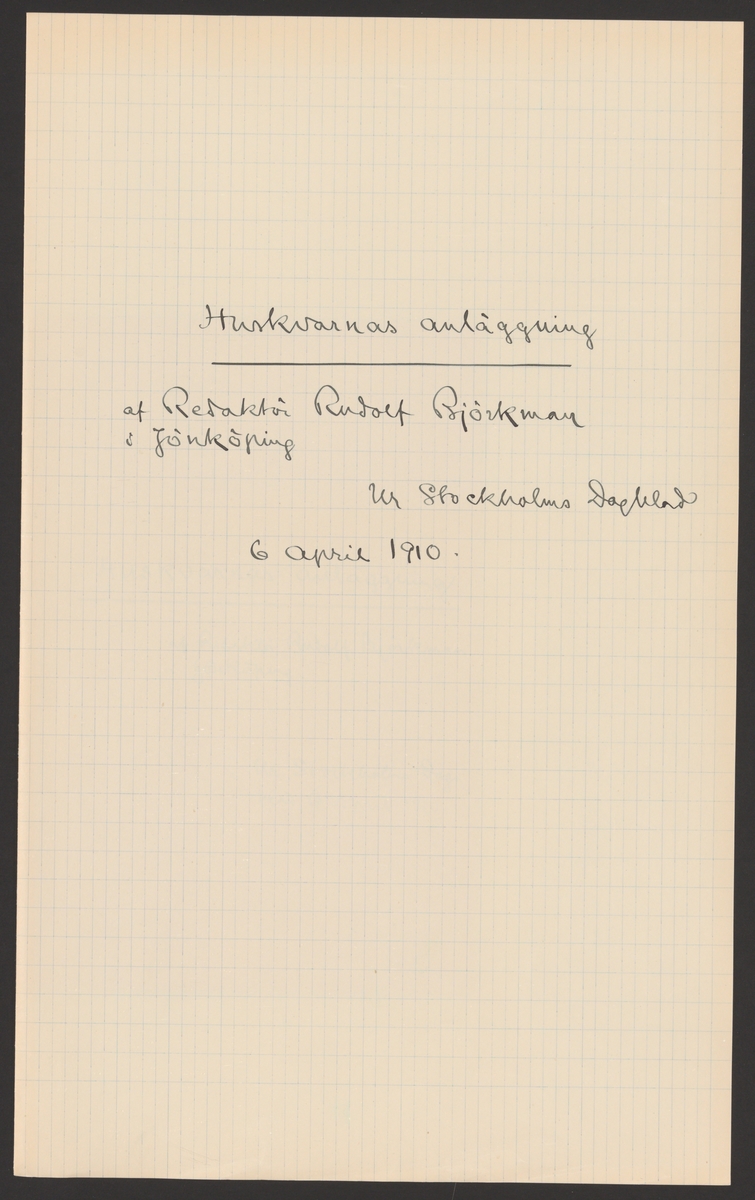 Huskvarnas anläggning
af Redaktör Rudolf Björkman
i Jönköping
Ur Stockholms Dagblad
6 April 1910.